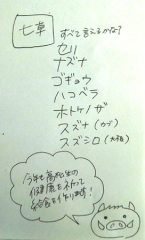 七草
すべて言えるかな?
セリ
ナズナ
ゴギョウ
ハコベラ
ホトケノザ
スズナ(カブ)
スズシロ(大根)
今年も高松生の
健康を祈って
給食を作ります!